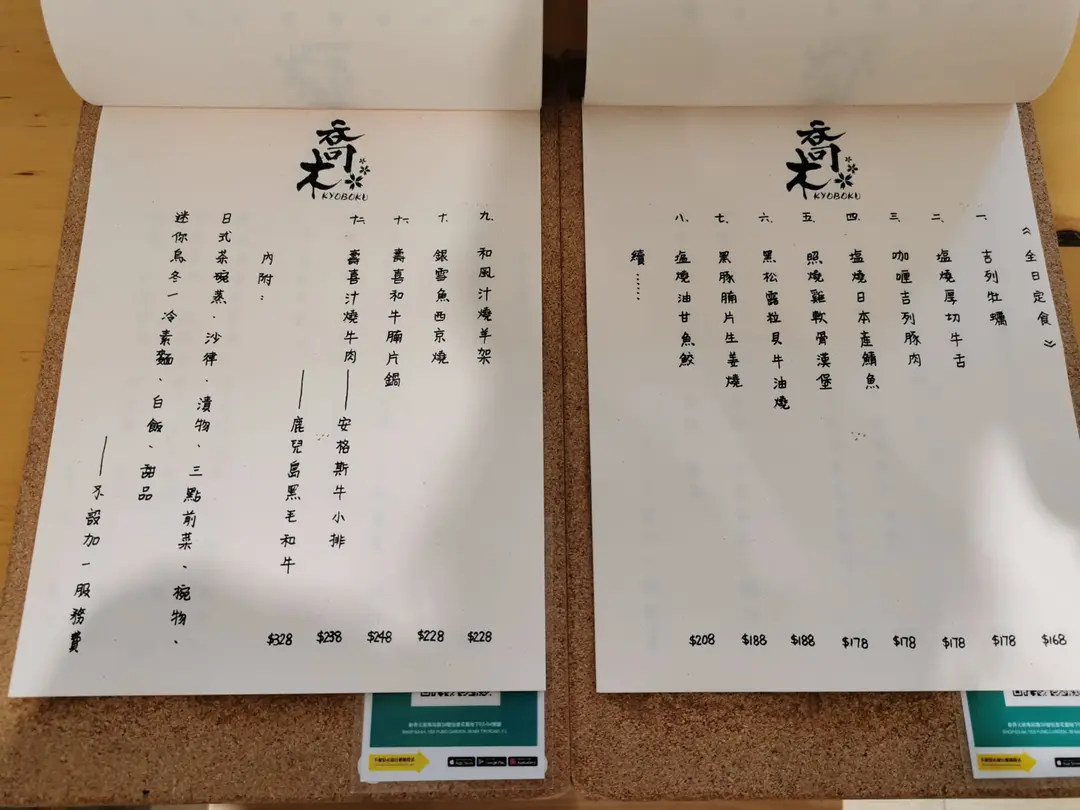 喬木
KYOBOKU
《全日定食》
一、吉列牡蠣 $168
二、塩燒厚切牛舌 $178
三、咖喱吉列豚肉 $178
四、塩燒日本產鯖魚 $178
五、照燒雞軟骨漢堡 $178
六、黑松露粒貝牛油燒 $188
七、黑豚腩片生姜燒 $188
八、塩燒油甘魚鮫 $208
續……
喬木
KYOBOKU
九、和風汁燒羊架 $228
十、銀雪魚西京燒 $228
十一、壽喜和牛腩片鍋 $248
十二、壽喜汁燒牛肉——安格斯牛小排 $238
——鹿兒島黑毛和牛 $328
內附：
日式茶碗蒸、沙律、漬物、三點前菜、椀物、
迷你烏冬一冷素麵、白飯、甜品
——不設加一服務費
App Store
Google Play